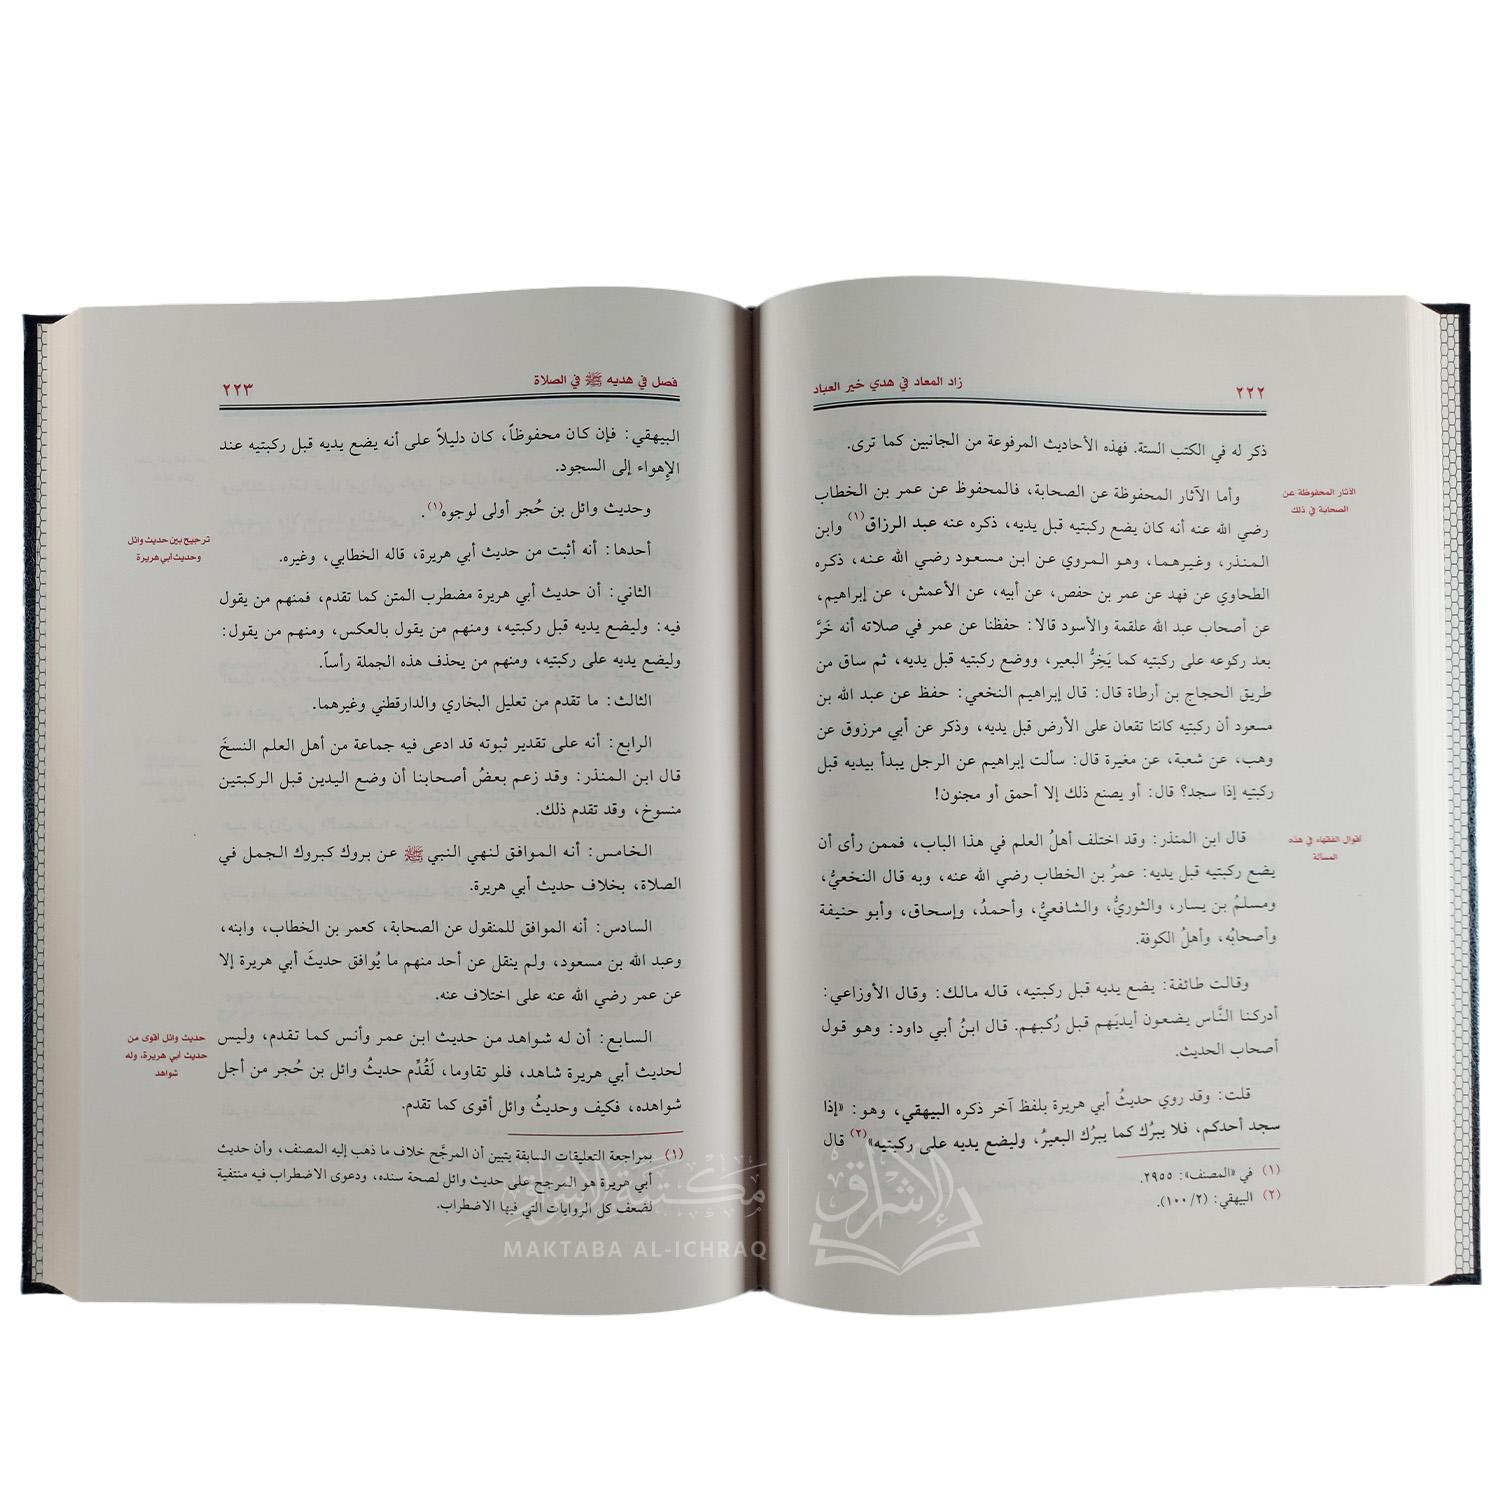 ٢٢٢
زاد المعاد في هدي خير العباد
ذكر له في الكتب الستة. فهذه الأحاديث المرفوعة من الجانبين كما ترى.
الآثار المحفوظة عن
الصحابة في ذلك
وأما الآثار المحفوظة عن الصحابة، فالمحفوظ عن عمر بن الخطاب
رضي الله عنه أنه كان يضع ركبتيه قبل يديه، ذكره عنه عبد الرزاق(١) وابن
المنذر، وغيرهما، وهو المروي عن ابن مسعود رضي الله عنه، ذكره
الطحاوي عن فهد عن عمر بن حفص، عن أبيه، عن الأعمش، عن إبراهيم،
عن أصحاب عبد الله علقمة والأسود قالا: حفظنا عن عمر في صلاته أنه خَرَّ
بعد ركوعه على ركبتيه كما يَخِرُّ البعير، ووضع ركبتيه قبل يديه، ثم ساق من
طريق الحجاج بن أرطاة قال: قال إبراهيم النخعي: حفظ عن عبد الله بن
مسعود أن ركبتيه كانتا تقعان على الأرض قبل يديه، وذكر عن أبي مرزوق عن
وهب، عن شعبة، عن مغيرة قال: سألت إبراهيم عن الرجل يبدأ بيديه قبل
ركبتيه إذا سجد؟ قال: أو يصنع ذلك إلا أحمق أو مجنون!
أقوال الفقهاء في هذه
المسألة
قال ابن المنذر: وقد اختلف أهلُ العلم في هذا الباب، فممن رأى أن
يضع ركبتيه قبل يديه: عمرُ بن الخطاب رضي الله عنه، وبه قال النخعيُّ،
ومسلمُ بن يسار، والثوريُّ، والشافعيُّ، وأحمدُ، وإسحاق، وأبو حنيفة
وأصحابُه، وأهلُ الكوفة.
وقالت طائفة: يضع يديه قبل ركبتيه، قاله مالك: وقال الأوزاعي:
أدركنا النَّاس يضعون أيديَهم قبل رُكبهم. قال ابنُ أبي داود: وهو قول
أصحاب الحديث.
قلت: وقد روي حديثُ أبي هريرة بلفظ آخر ذكره البيهقي، وهو: «إذا
سجد أحدكم، فلا يبرُك كما يبرُك البعيرُ، وليضع يديه على ركبتيه»(٢) قال
(١) في «المصنف»: ٢٩٥٥.
(٢) البيهقي: (٢/١٠٠).
فصل في هديه ﷺ في الصلاة
٢٢٣
البيهقي: فإن كان محفوظاً، كان دليلاً على أنه يضع يديه قبل ركبتيه عند
الإهواء إلى السجود.
وحديث وائل بن حُجر أولى لوجوه(١).
ترجيح بين حديث وائل
وحديث أبي هريرة
أحدها: أنه أثبت من حديث أبي هريرة، قاله الخطابي، وغيره.
الثاني: أن حديث أبي هريرة مضطرب المتن كما تقدم، فمنهم من يقول
فيه: وليضع يديه قبل ركبتيه، ومنهم من يقول بالعكس، ومنهم من يقول:
وليضع يديه على ركبتيه، ومنهم من يحذف هذه الجملة رأساً.
الثالث: ما تقدم من تعليل البخاري والدارقطني وغيرهما.
الرابع: أنه على تقدير ثبوته قد ادعى فيه جماعة من أهل العلم النسخَ
قال ابن المنذر: وقد زعم بعضُ أصحابنا أن وضع اليدين قبل الركبتين
منسوخ، وقد تقدم ذلك.
الخامس: أنه الموافق لنهي النبي ﷺ عن بروك كبروك الجمل في
الصلاة، بخلاف حديث أبي هريرة.
السادس: أنه الموافق للمنقول عن الصحابة، كعمر بن الخطاب، وابنه،
وعبد الله بن مسعود، ولم ينقل عن أحد منهم ما يُوافق حديثَ أبي هريرة إلا
عن عمر رضي الله عنه على اختلاف عنه.
السابع: أن له شواهد من حديث ابن عمر وأنس كما تقدم، وليس
لحديث أبي هريرة شاهد، فلو تقاوما، لَقُدِّم حديثُ وائل بن حُجر من أجل
شواهده، فكيف وحديثُ وائل أقوى كما تقدم.
حديث وائل أقوى من
حديث أبي هريرة، وله
شواهد
(١) بمراجعة التعليقات السابقة يتبين أن المرجَّح خلاف ما ذهب إليه المصنف، وأن حديث
أبي هريرة هو المرجح على حديث وائل لصحة سنده، ودعوى الاضطراب فيه منتفية
لضعف كل الروايات التي فيها الاضطراب.
مكتبة الإشراق
MAKTABA AL-ICHRAQ
الإشراق